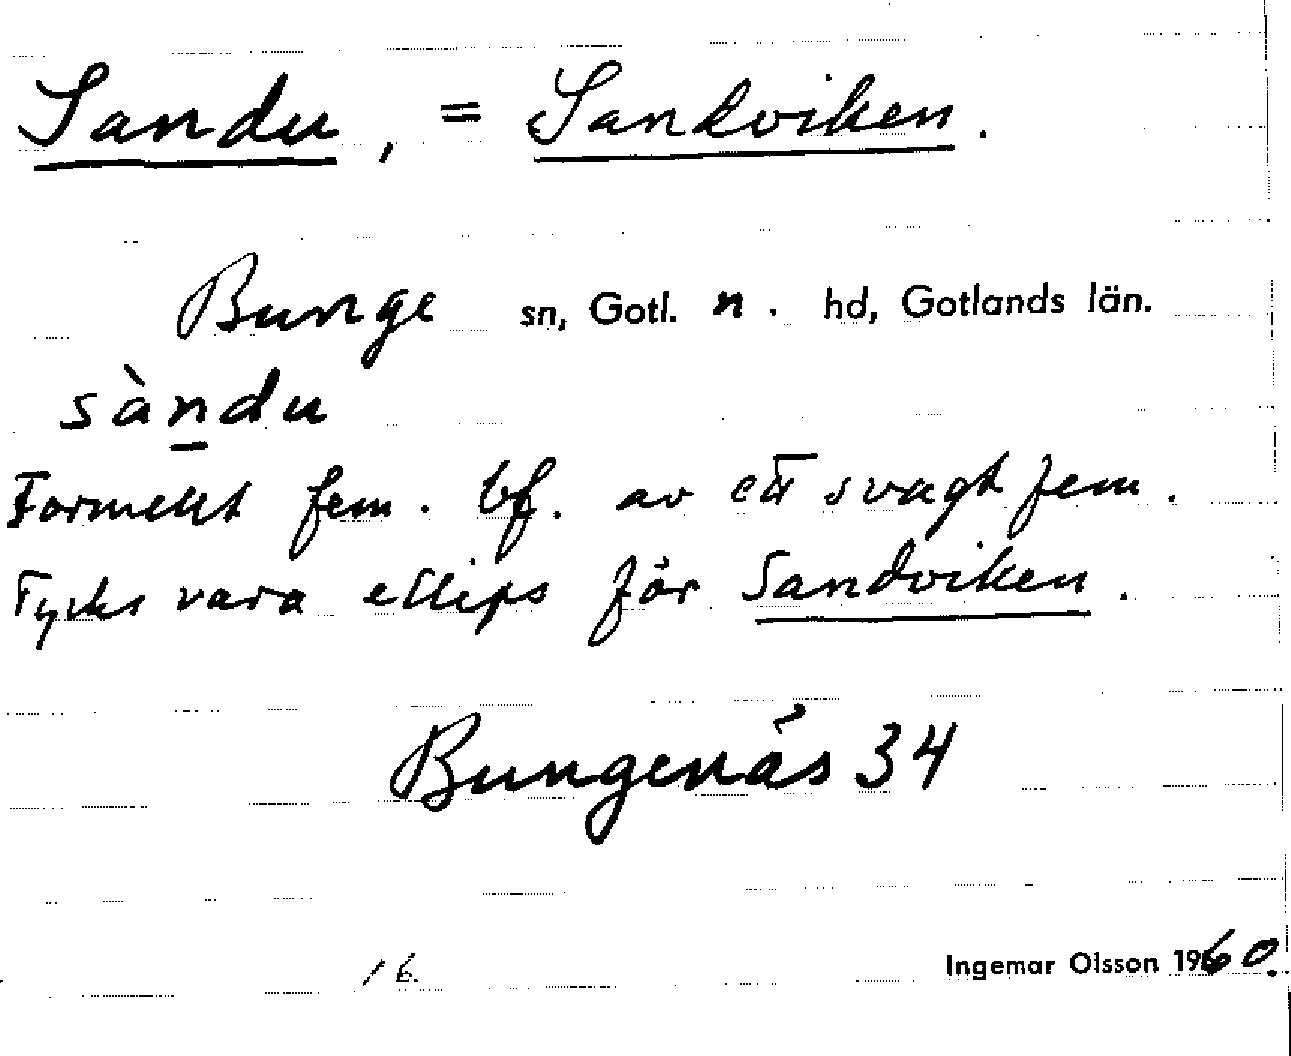 Sandu, = Sandviken.
Bunge sn, Gotl. n. hd, Gotlands län.
sàndu
Formellt fem. bf. av ett svagt fem.
Tycks vara ellips för Sandviken.
Bungenäs 34
16.
Ingemar Olsson 1960.